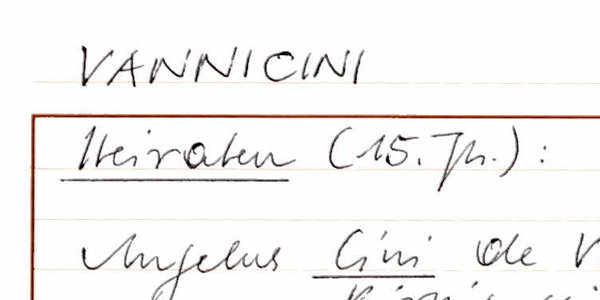 VANNICINI
Heiraten (15. Jh.):
Angelus Cini de V